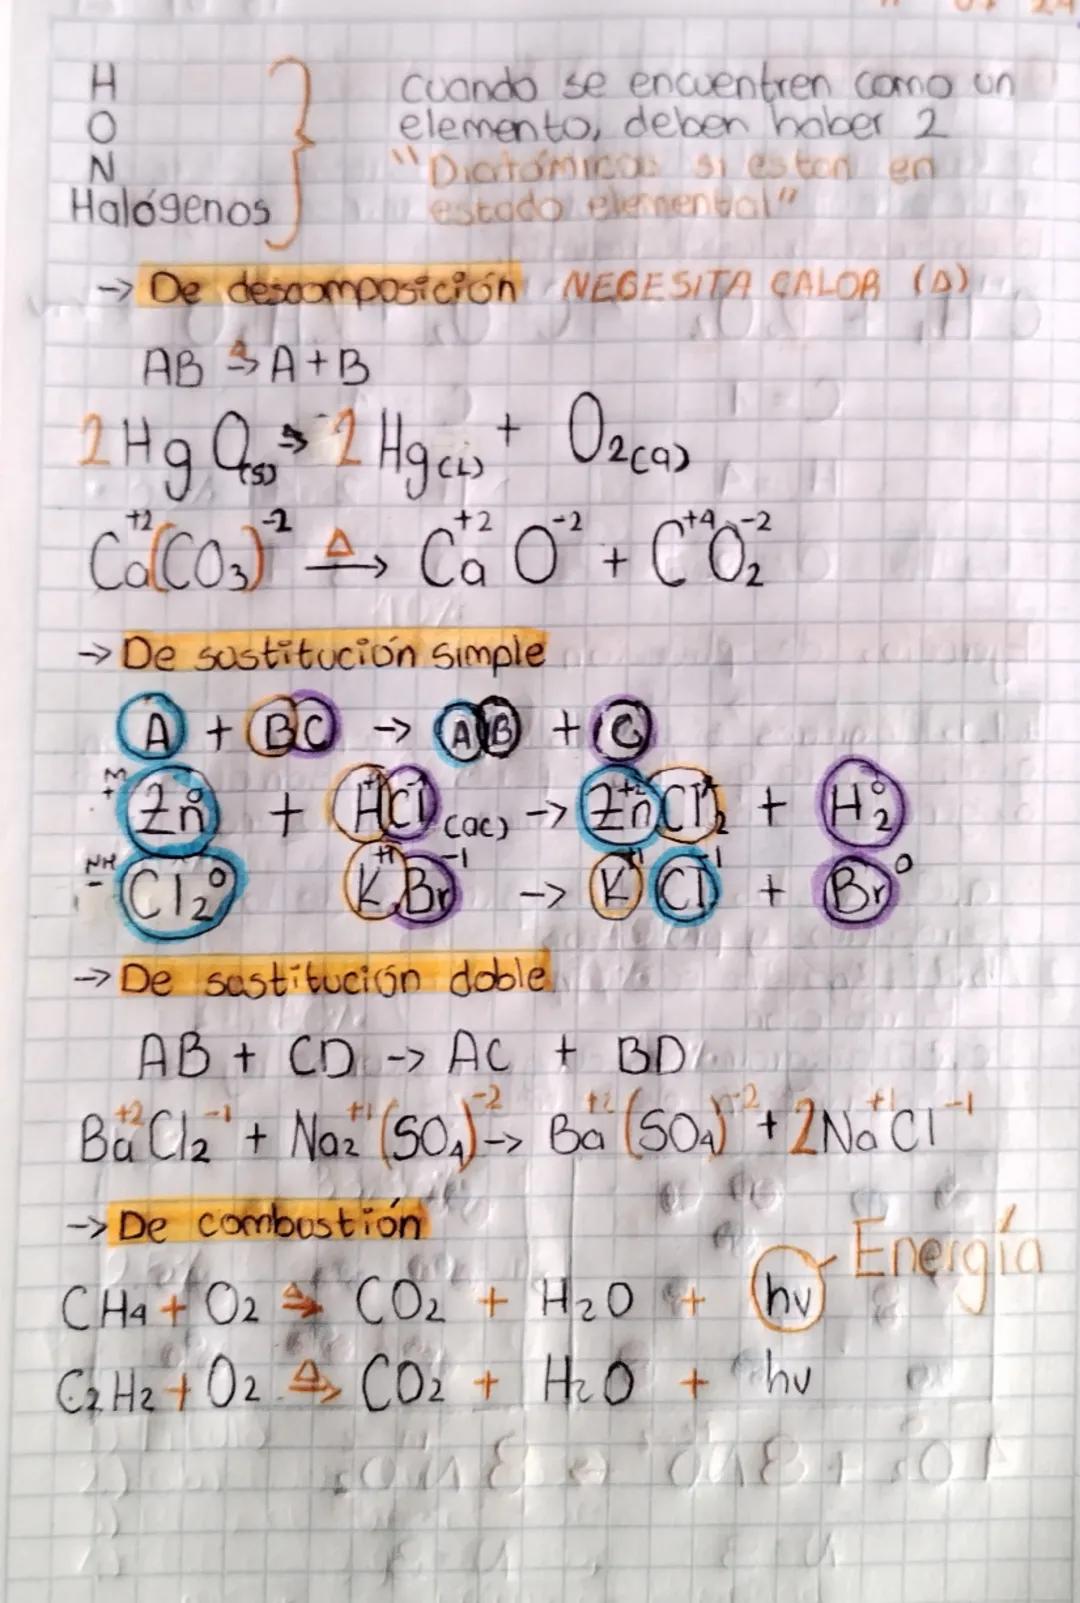 H
O
N
Halógenos
cuando se encuentren como un
elemento, deben haber 2
"Diatómicos si estan en
estado elemental"
-> De descomposición NECESITA CALOR (Δ)
AB Δ-> A + B
2HgO(s) -> 2Hg(L) + O2(g)
Ca+2(CO3)-2 Δ-> Ca+2 O-2 + C+4O2-2
-> De sustitución simple
A + BC -> AB + C
+M Zn0 + H+1Cl-1 (ac) -> Zn+2Cl2 + H20
NM - Cl20 K+1Br-1 -> K+1 Cl-1 + Br0
-> De sustitución doble
AB + CD -> AC + BD
Ba+2Cl2-1 + Na2+1(SO4)-2 -> Ba+2(SO4)-2 + 2Na+1Cl-1
-> De combustión
CH4 + O2 Δ-> CO2 + H2O + hv Energía
C2H2 + O2 Δ-> CO2 + H2O + hv